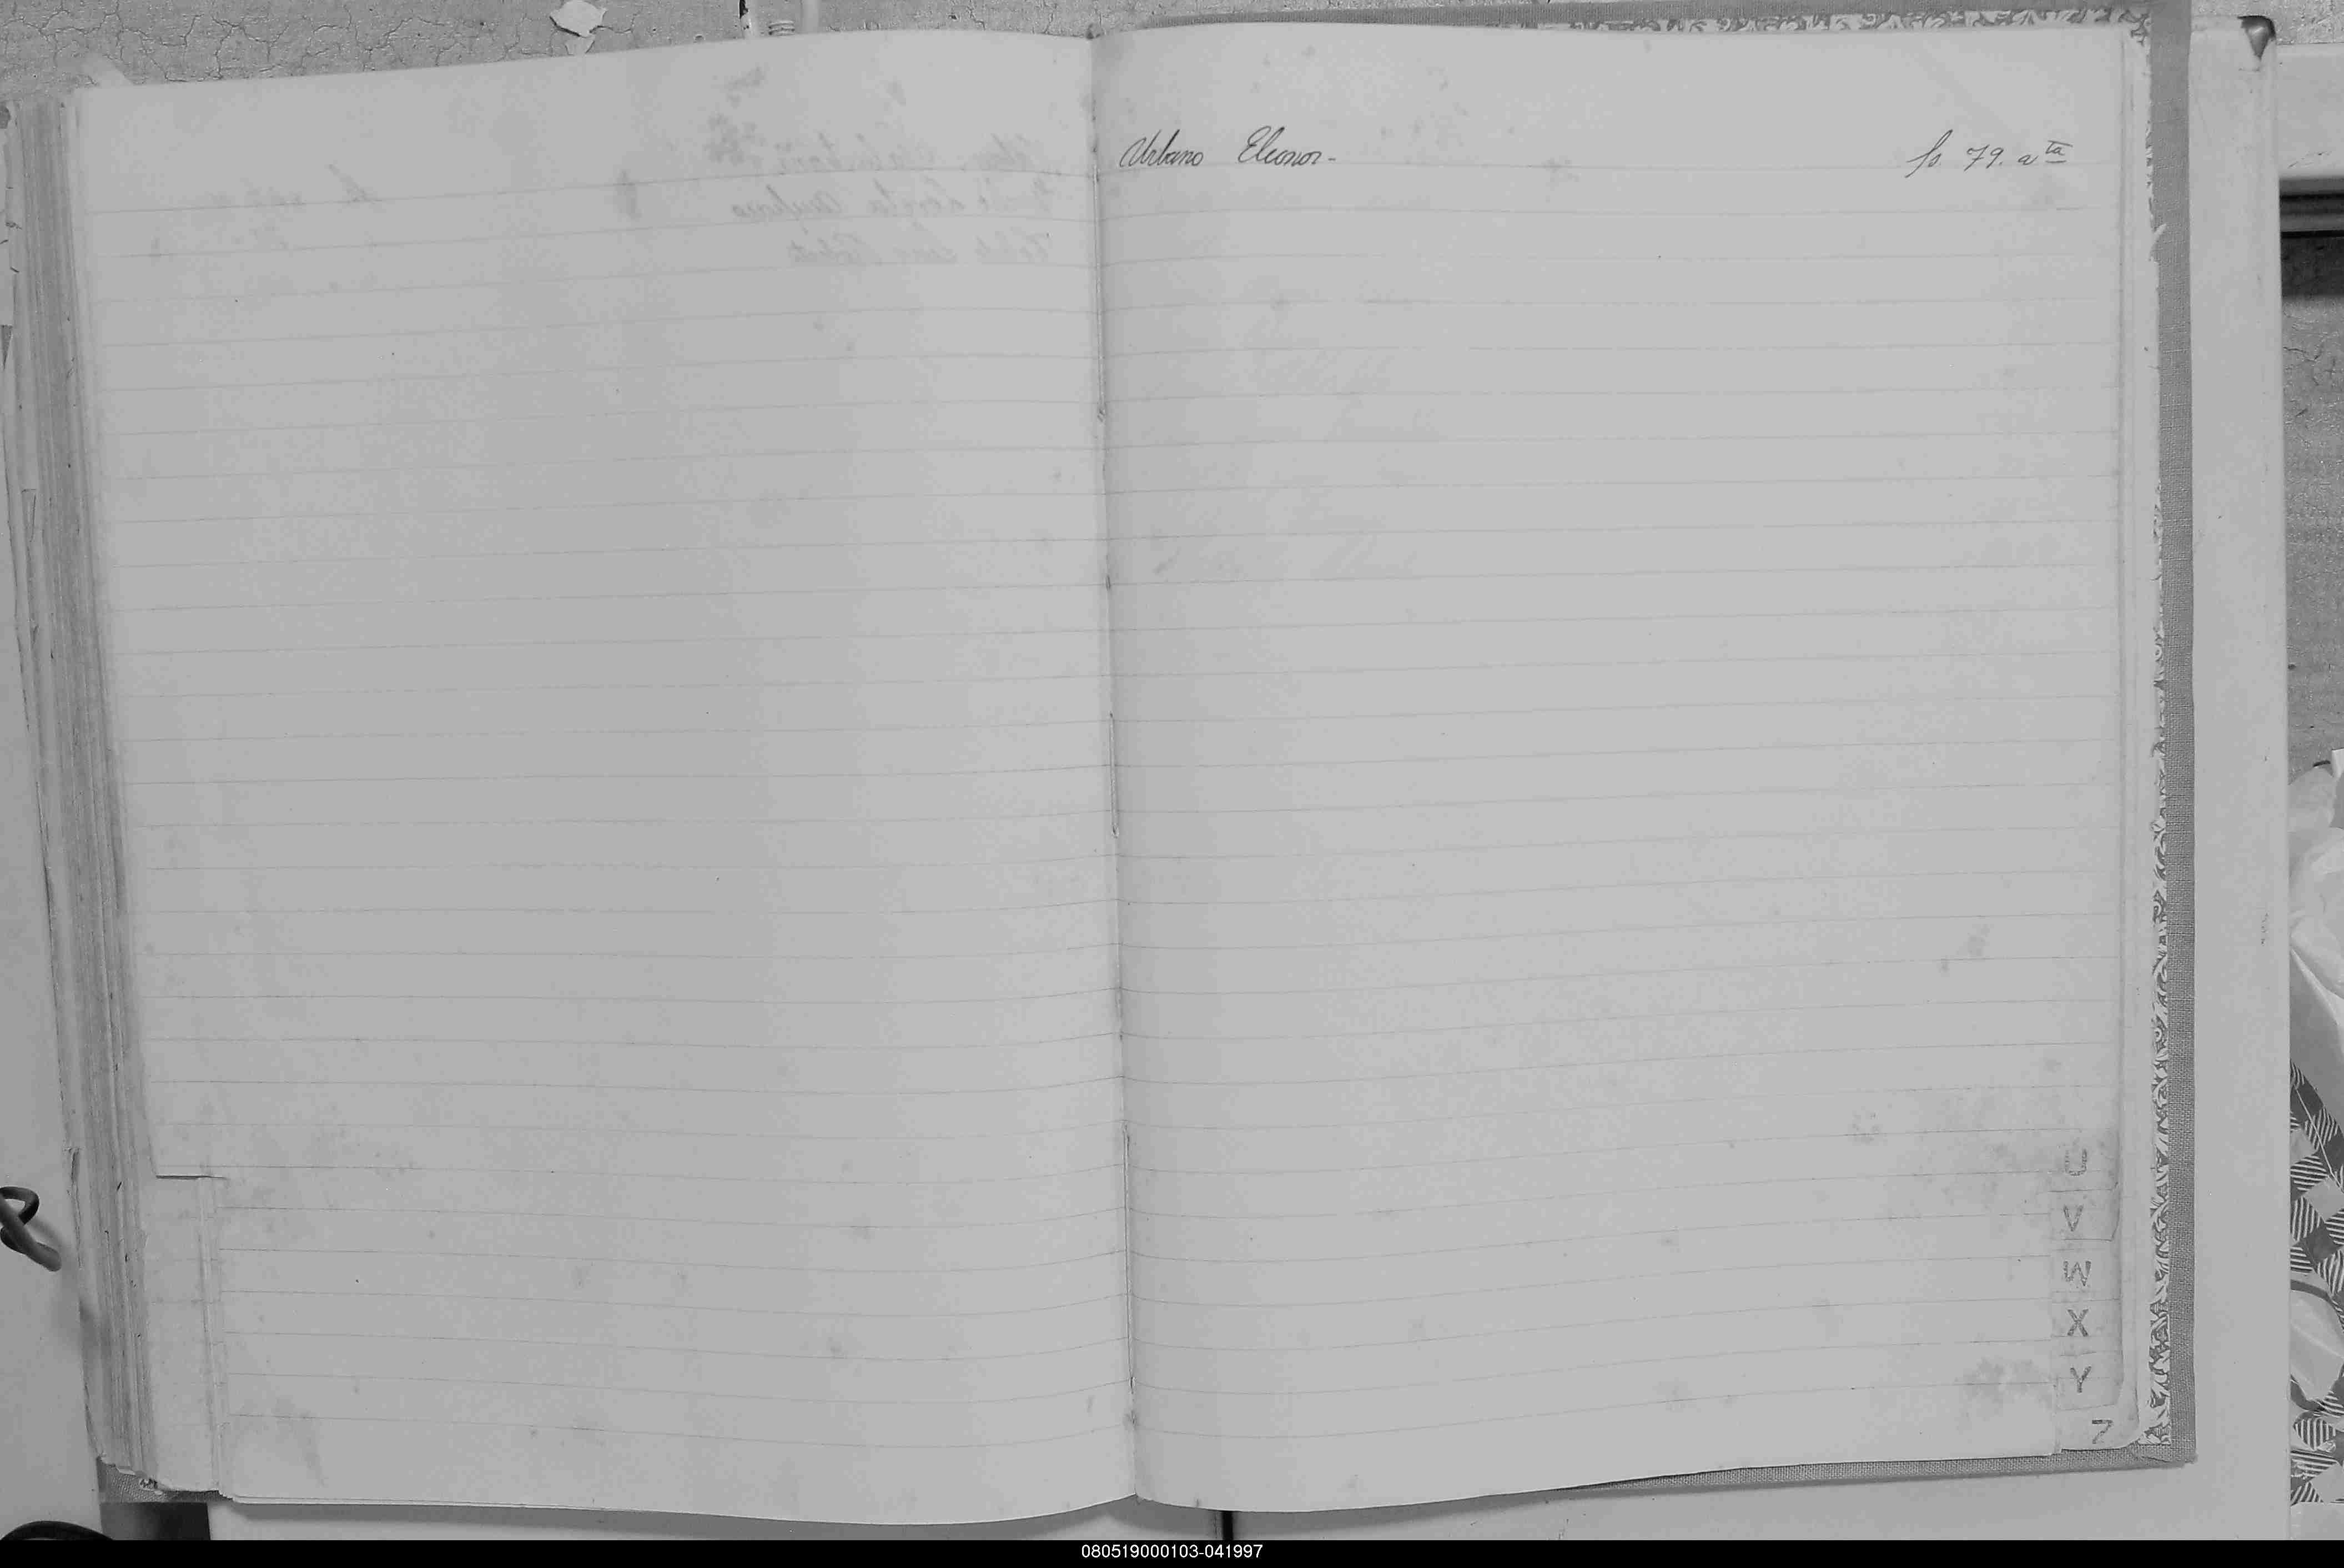 Urbano Eleonor - fs. 79. a ta
U
V
W
X
Y
Z
080519000103-041997